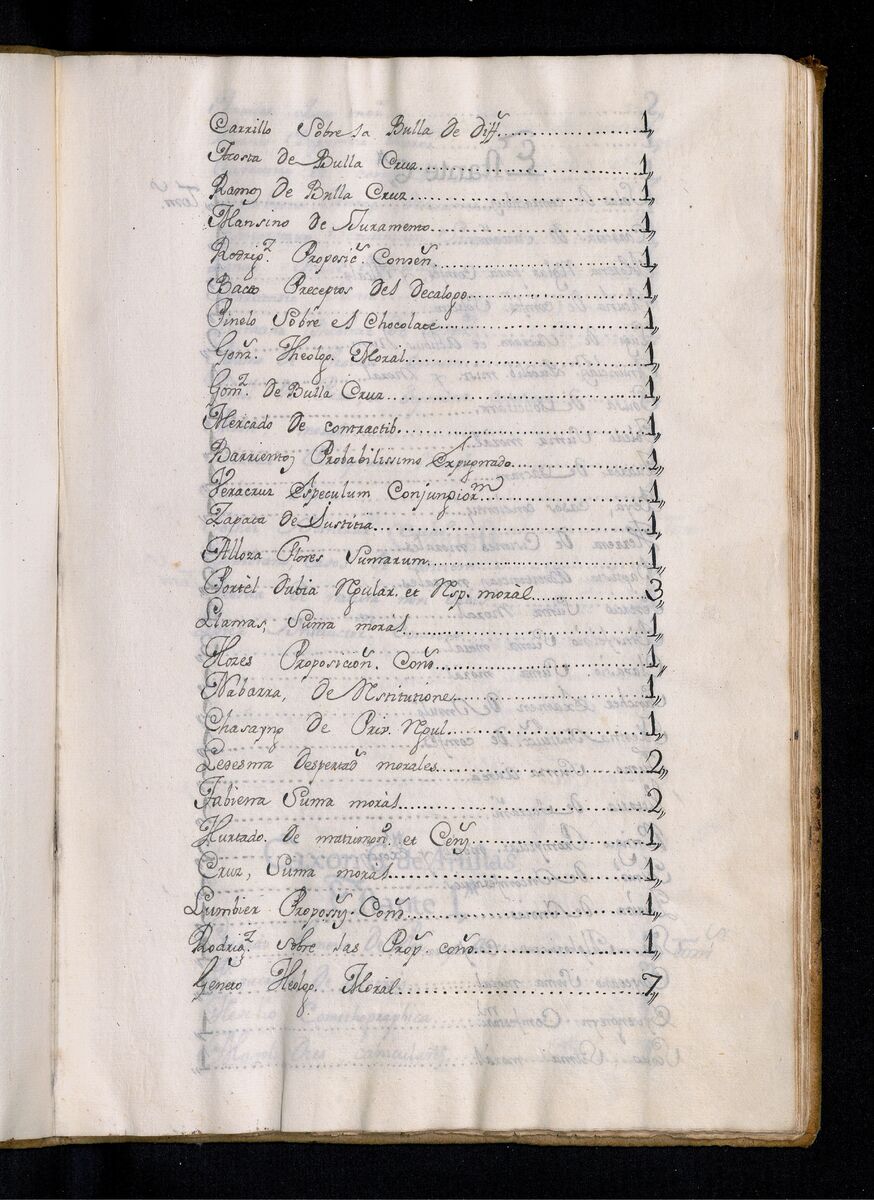 Carrillo Sobre la Bulla de diff. 1„
Acosta de Bulla Cruz 1„
Ramos de Bulla Cruz 1„
Mansino de Juramento 1„
Rodrigz. Proposic. Conden. 1„
Baco Preceptos del Decalogo 1„
Pinelo Sobre el Chocolate 1„
Gonz. Theolog. Moral 1„
Gomz. de Bulla Cruz 1„
Mercado de contractib. 1„
Barrientos Probabilissimo Expugnado 1„
Veracruz Speculum Conjungiorm 1„
Zapata de Justitia 1„
Alloza Flores Sumarum 1„
Portèl dubia Rgular. et Rsp. moral 3„
Llamas, Suma moràl 1„
Hozes Proposición. Con. 1„
Nabarra, de Rstitutione 1„
Chasayng de Priv. Rgul. 1„
Ledesma despertad. morales 2„
Fabierra Suma moràl 2„
Hurtado. de matrimon. et Cens. 1„
Cruz, Suma moràl 1„
Lumbier Proposs. Con. 1„
Rodrigz. sobre las Prop. con. 1„
Genero Theolog. Moral 7„